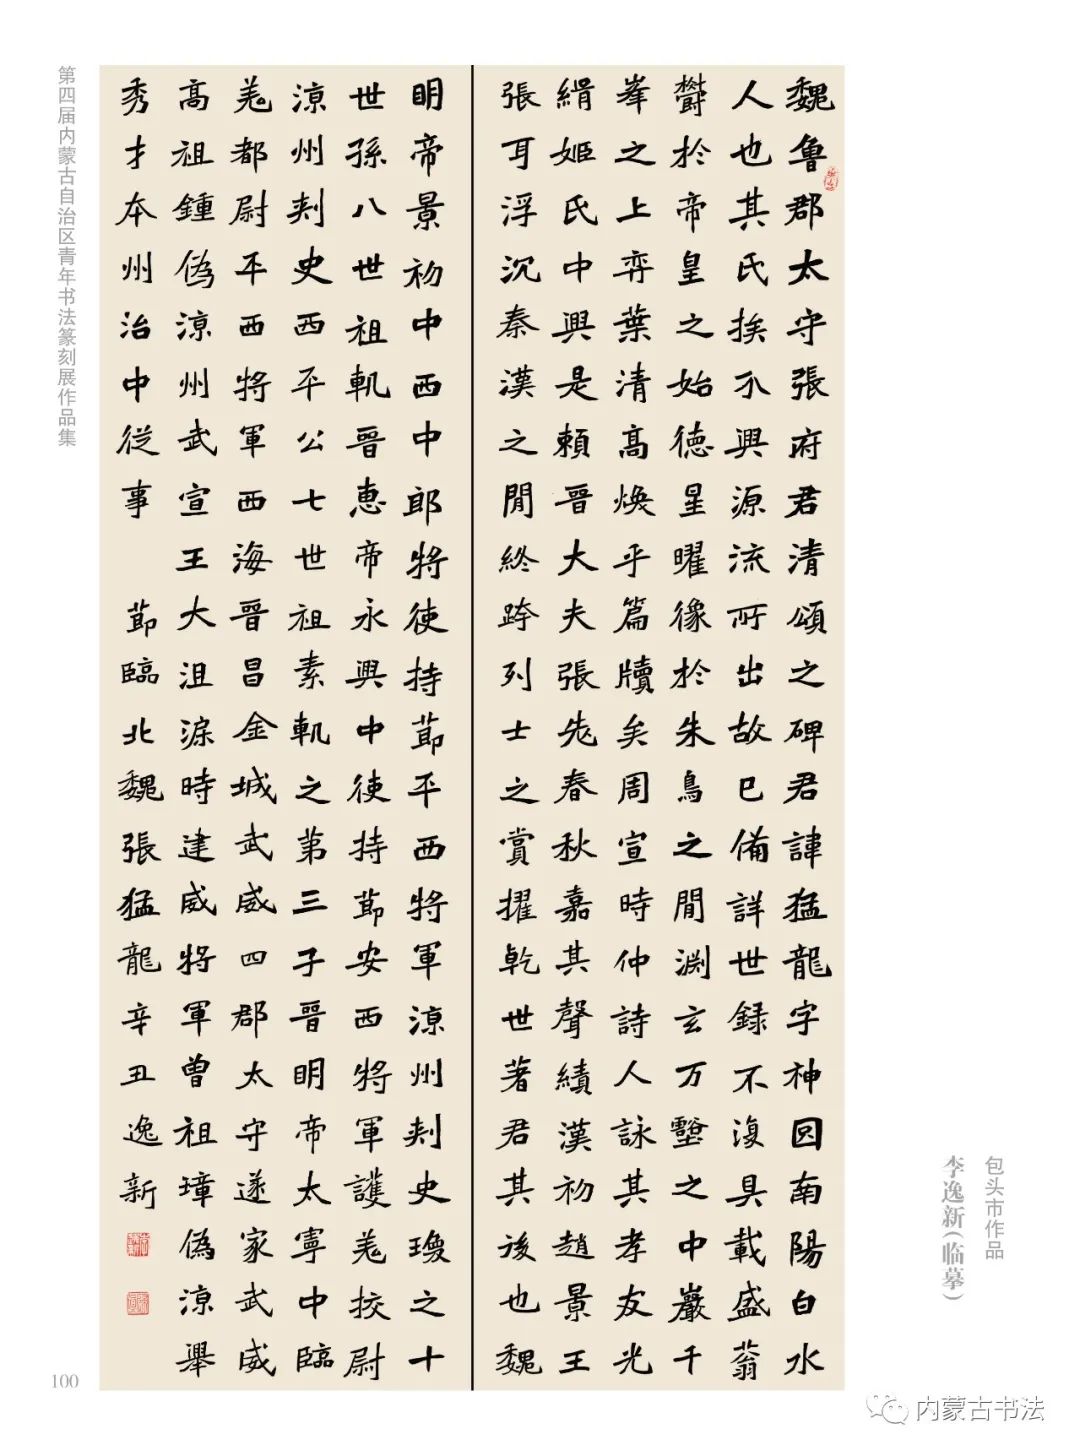 第四届内蒙古自治区青年书法篆刻展作品集
魏魯郡太守張府君清頌之碑君諱猛龍字神囧南陽白水
人也其氏族分興源流所出故已備詳世録不復具載盛蓊
欝於帝皇之始德星曜像於朱鳥之閒淵玄万壑之中巖千
峯之上弈葉清高煥乎篇牘矣周宣時仲詩人詠其孝友光
緝姬氏中興是賴晋大夫張老春秋嘉其聲績漢初趙景王
張耳浮沉秦漢之閒終跨列士之賞擢乾世著君其後也魏
明帝景初中西中郎將使持節平西將軍涼州刾史瓊之十
世孫八世祖軌晋惠帝永興中使持節安西將軍護羗挍尉
涼州刾史西平公七世祖素軌之第三子晋明帝太寧中臨
羗都尉平西將軍西海晋昌金城武威四郡太守遂家武威
高祖鍾偽涼州武宣王大沮渠時建威將軍曾祖璋偽涼舉
秀才本州治中從事 節臨北魏張猛龍辛丑逸新
包头市作品
李逸新(临摹)
100
内蒙古书法